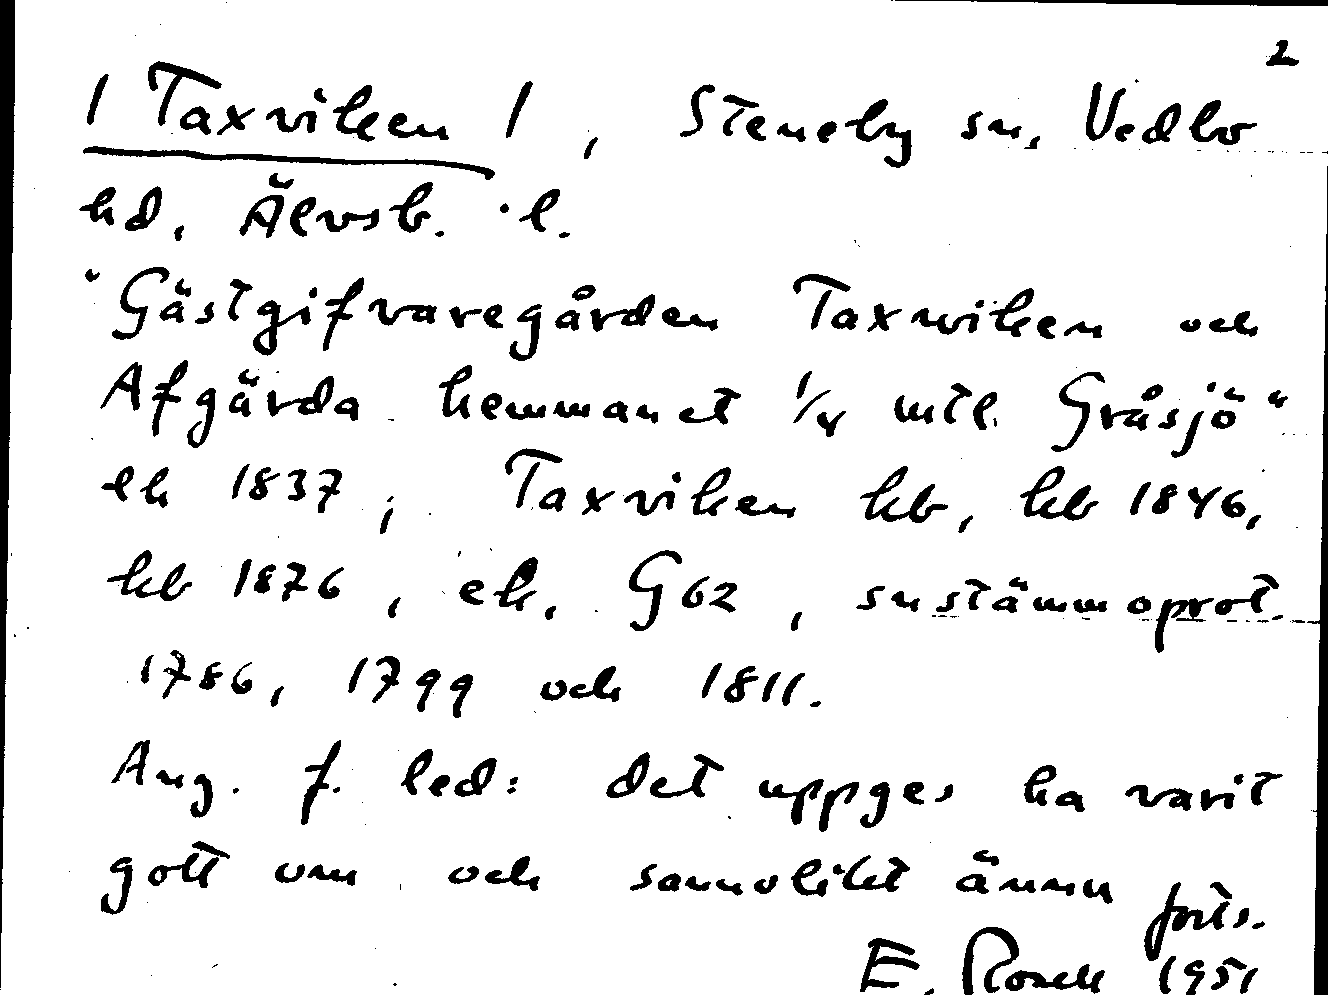 2
/ Taxviken /, Steneby sn, Vedbo
hd, Älvsb. l.
"Gästgifvaregården Taxwiken och
Afgärda hemmanet 1/4 mtl. Gråsjö"
lh 1837, Taxviken kb, kb 1846,
kb 1876, ek. G62, sustämmoprot.
1786, 1799 och 1811.
Ang. f. led: det uppges ha varit
gott om och sannolikt ännu forts.
E. Rosell 1951